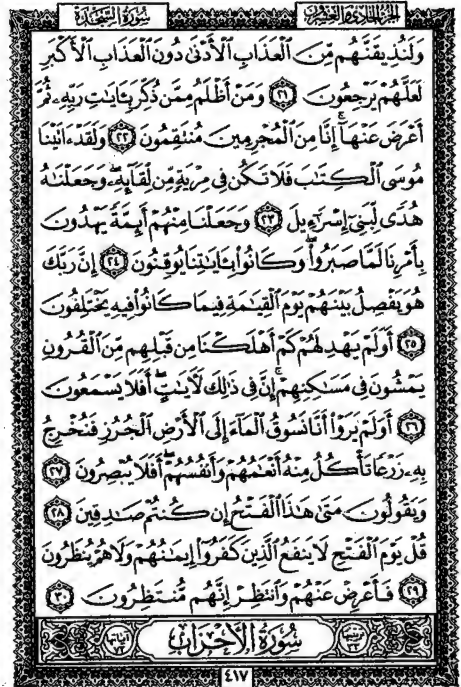 الجزء الحادي والعشرون سورة السجدة
وَلَنُذِيقَنَّهُم مِّنَ ٱلْعَذَابِ ٱلْأَدْنَىٰ دُونَ ٱلْعَذَابِ ٱلْأَكْبَرِ
لَعَلَّهُمْ يَرْجِعُونَ ٢١ وَمَنْ أَظْلَمُ مِمَّن ذُكِّرَ بِـَٔايَٰتِ رَبِّهِۦ ثُمَّ
أَعْرَضَ عَنْهَآ ۚ إِنَّا مِنَ ٱلْمُجْرِمِينَ مُنتَقِمُونَ ٢٢ وَلَقَدْ ءَاتَيْنَا
مُوسَى ٱلْكِتَٰبَ فَلَا تَكُن فِى مِرْيَةٍ مِّن لِّقَآئِهِۦ ۖ وَجَعَلْنَٰهُ
هُدًى لِّبَنِىٓ إِسْرَٰٓءِيلَ ٢٣ وَجَعَلْنَا مِنْهُمْ أَئِمَّةً يَهْدُونَ
بِأَمْرِنَا لَمَّا صَبَرُوا۟ ۖ وَكَانُوا۟ بِـَٔايَٰتِنَا يُوقِنُونَ ٢٤ إِنَّ رَبَّكَ
هُوَ يَفْصِلُ بَيْنَهُمْ يَوْمَ ٱلْقِيَٰمَةِ فِيمَا كَانُوا۟ فِيهِ يَخْتَلِفُونَ
٢٥ أَوَلَمْ يَهْدِ لَهُمْ كَمْ أَهْلَكْنَا مِن قَبْلِهِم مِّنَ ٱلْقُرُونِ
يَمْشُونَ فِى مَسَٰكِنِهِمْ ۚ إِنَّ فِى ذَٰلِكَ لَـَٔايَٰتٍ ۖ أَفَلَا يَسْمَعُونَ
٢٦ أَوَلَمْ يَرَوْا۟ أَنَّا نَسُوقُ ٱلْمَآءَ إِلَى ٱلْأَرْضِ ٱلْجُرُزِ فَنُخْرِجُ
بِهِۦ زَرْعًا تَأْكُلُ مِنْهُ أَنْعَٰمُهُمْ وَأَنفُسُهُمْ ۖ أَفَلَا يُبْصِرُونَ ٢٧
وَيَقُولُونَ مَتَىٰ هَٰذَا ٱلْفَتْحُ إِن كُنتُمْ صَٰدِقِينَ ٢٨
قُلْ يَوْمَ ٱلْفَتْحِ لَا يَنفَعُ ٱلَّذِينَ كَفَرُوٓا۟ إِيمَٰنُهُمْ وَلَا هُمْ يُنظَرُونَ
٢٩ فَأَعْرِضْ عَنْهُمْ وَٱنتَظِرْ إِنَّهُم مُّنتَظِرُونَ ٣٠
ترتيبها ٣٣ سُورَةُ ٱلْأَحْزَابِ آياتها ٧٣
٤١٧